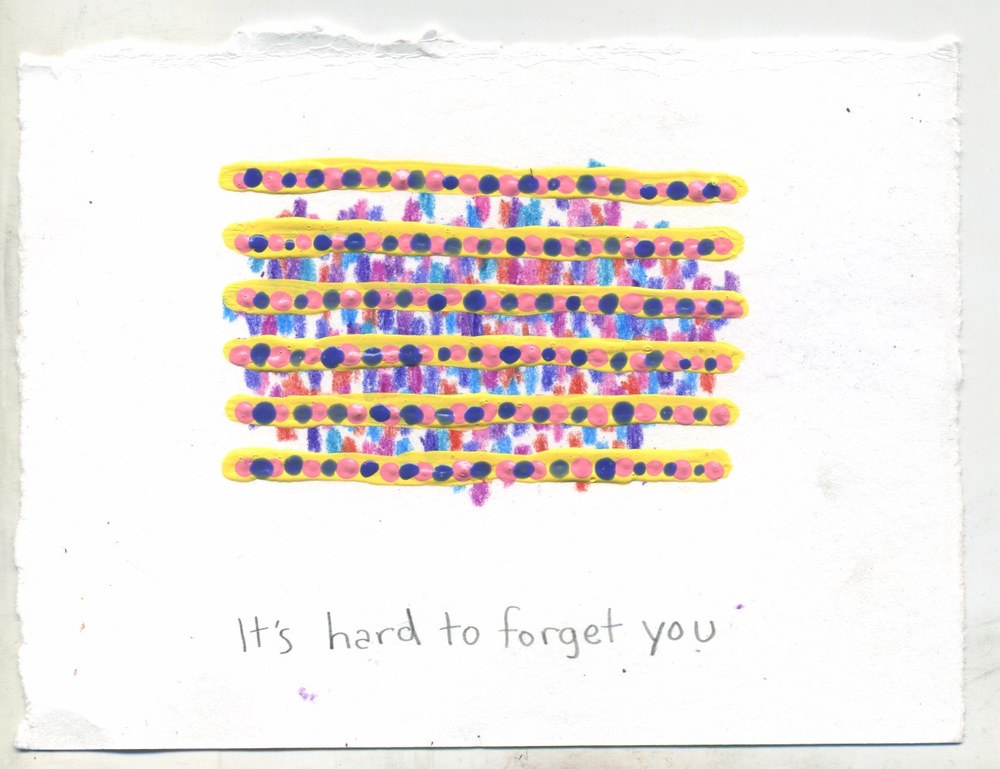 It's hard to forget you